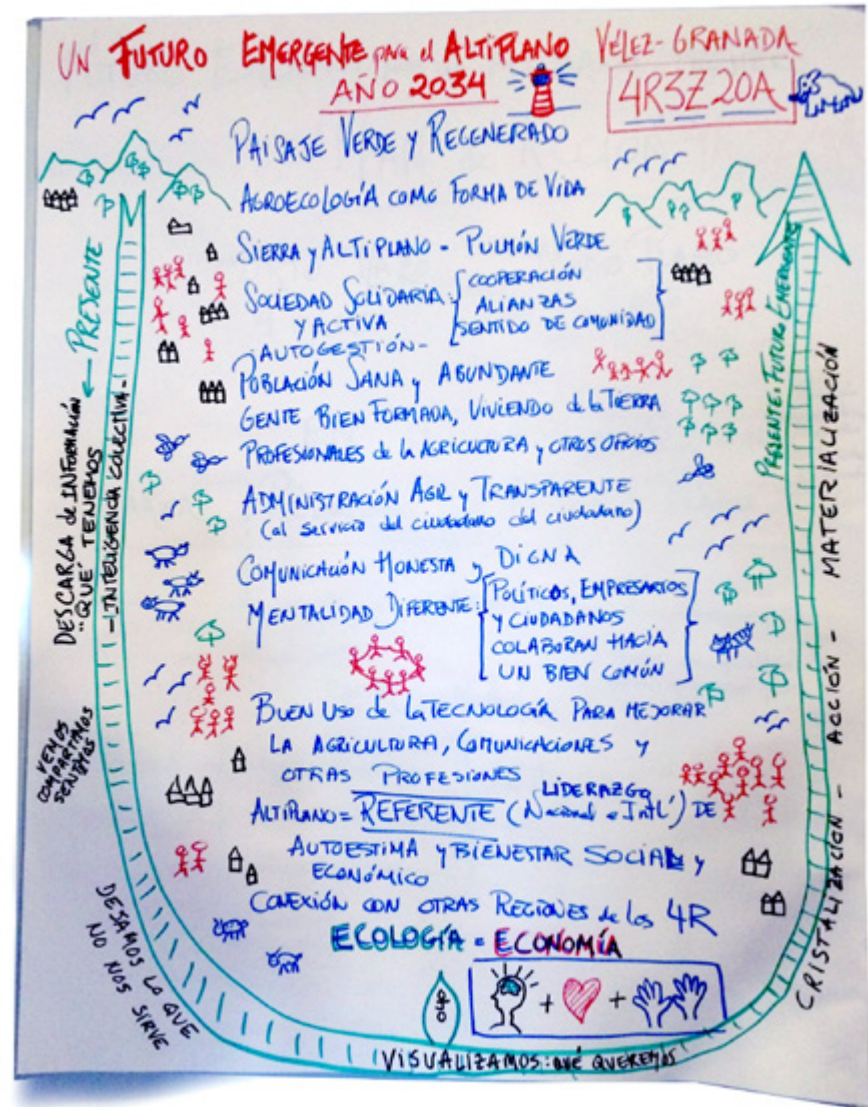 UN FUTURO EMERGENTE para el ALTIPLANO VÉLEZ-GRANADA
AÑO 2034
4R3Z20A
PAISAJE VERDE Y REGENERADO
AGROECOLOGÍA COMO FORMA DE VIDA
SIERRA y ALTIPLANO - PULMÓN VERDE
SOCIEDAD SOLIDARIA: COOPERACIÓN
Y ACTIVA ALIANZAS
SENTIDO DE COMUNIDAD
- AUTOGESTIÓN -
POBLACIÓN SANA y ABUNDANTE
GENTE BIEN FORMADA, VIVIENDO de la TIERRA
PROFESIONALES de la AGRICULTURA y OTROS OFICIOS
ADMINISTRACIÓN AGIL y TRANSPARENTE
(al servicio del ciudadano del ciudadano)
COMUNICACIÓN HONESTA y DIGNA
MENTALIDAD DIFERENTE: POLÍTICOS, EMPRESARIOS
Y CIUDADANOS
COLABORAN HACIA
UN BIEN COMÚN
BUEN USO de la TECNOLOGÍA PARA MEJORAR
LA AGRICULTURA, COMUNICACIONES y
OTRAS PROFESIONES
LIDERAZGO
ALTIPLANO = REFERENTE (Nacional e Intl') DE
AUTOESTIMA y BIENESTAR SOCIAL y
ECONÓMICO
CONEXIÓN CON OTRAS REGIONES de los 4R
ECOLOGÍA = ECONOMÍA
+ +
DESCARGA de INFORMACIÓN ← PRESENTE
"QUÉ TENEMOS
- INTELIGENCIA COLECTIVA -
VEMOS
COMPARTIMOS
SENTIMOS
DEJAMOS LO QUE
NO NOS SIRVE
VISUALIZAMOS: QUÉ QUEREMOS
CRISTALIZACIÓN - ACCIÓN - MATERIALIZACIÓN
PRESENTE: FUTURO EMERGENTE